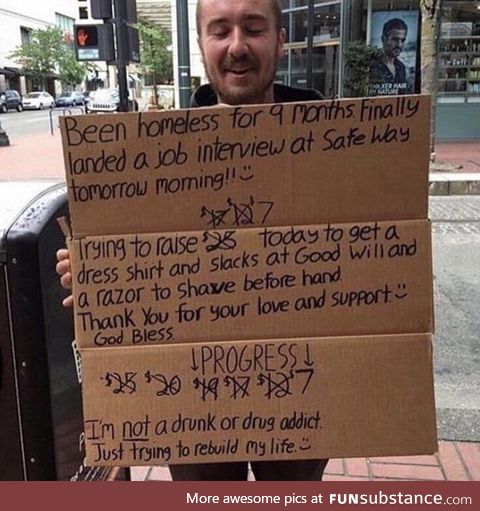 Been homeless for 9 months. Finally
landed a job interview at Safe Way
tomorrow morning!!
7
Trying to raise $25 today to get a
dress shirt and slacks at Good Will and
a razor to shave before hand.
Thank You for your love and support.
God Bless
↓PROGRESS↓
$25 $20 $19 $17 $12 7
I'm not a drunk or drug addict.
Just trying to rebuild my life.
More awesome pics at FUNsubstance.com